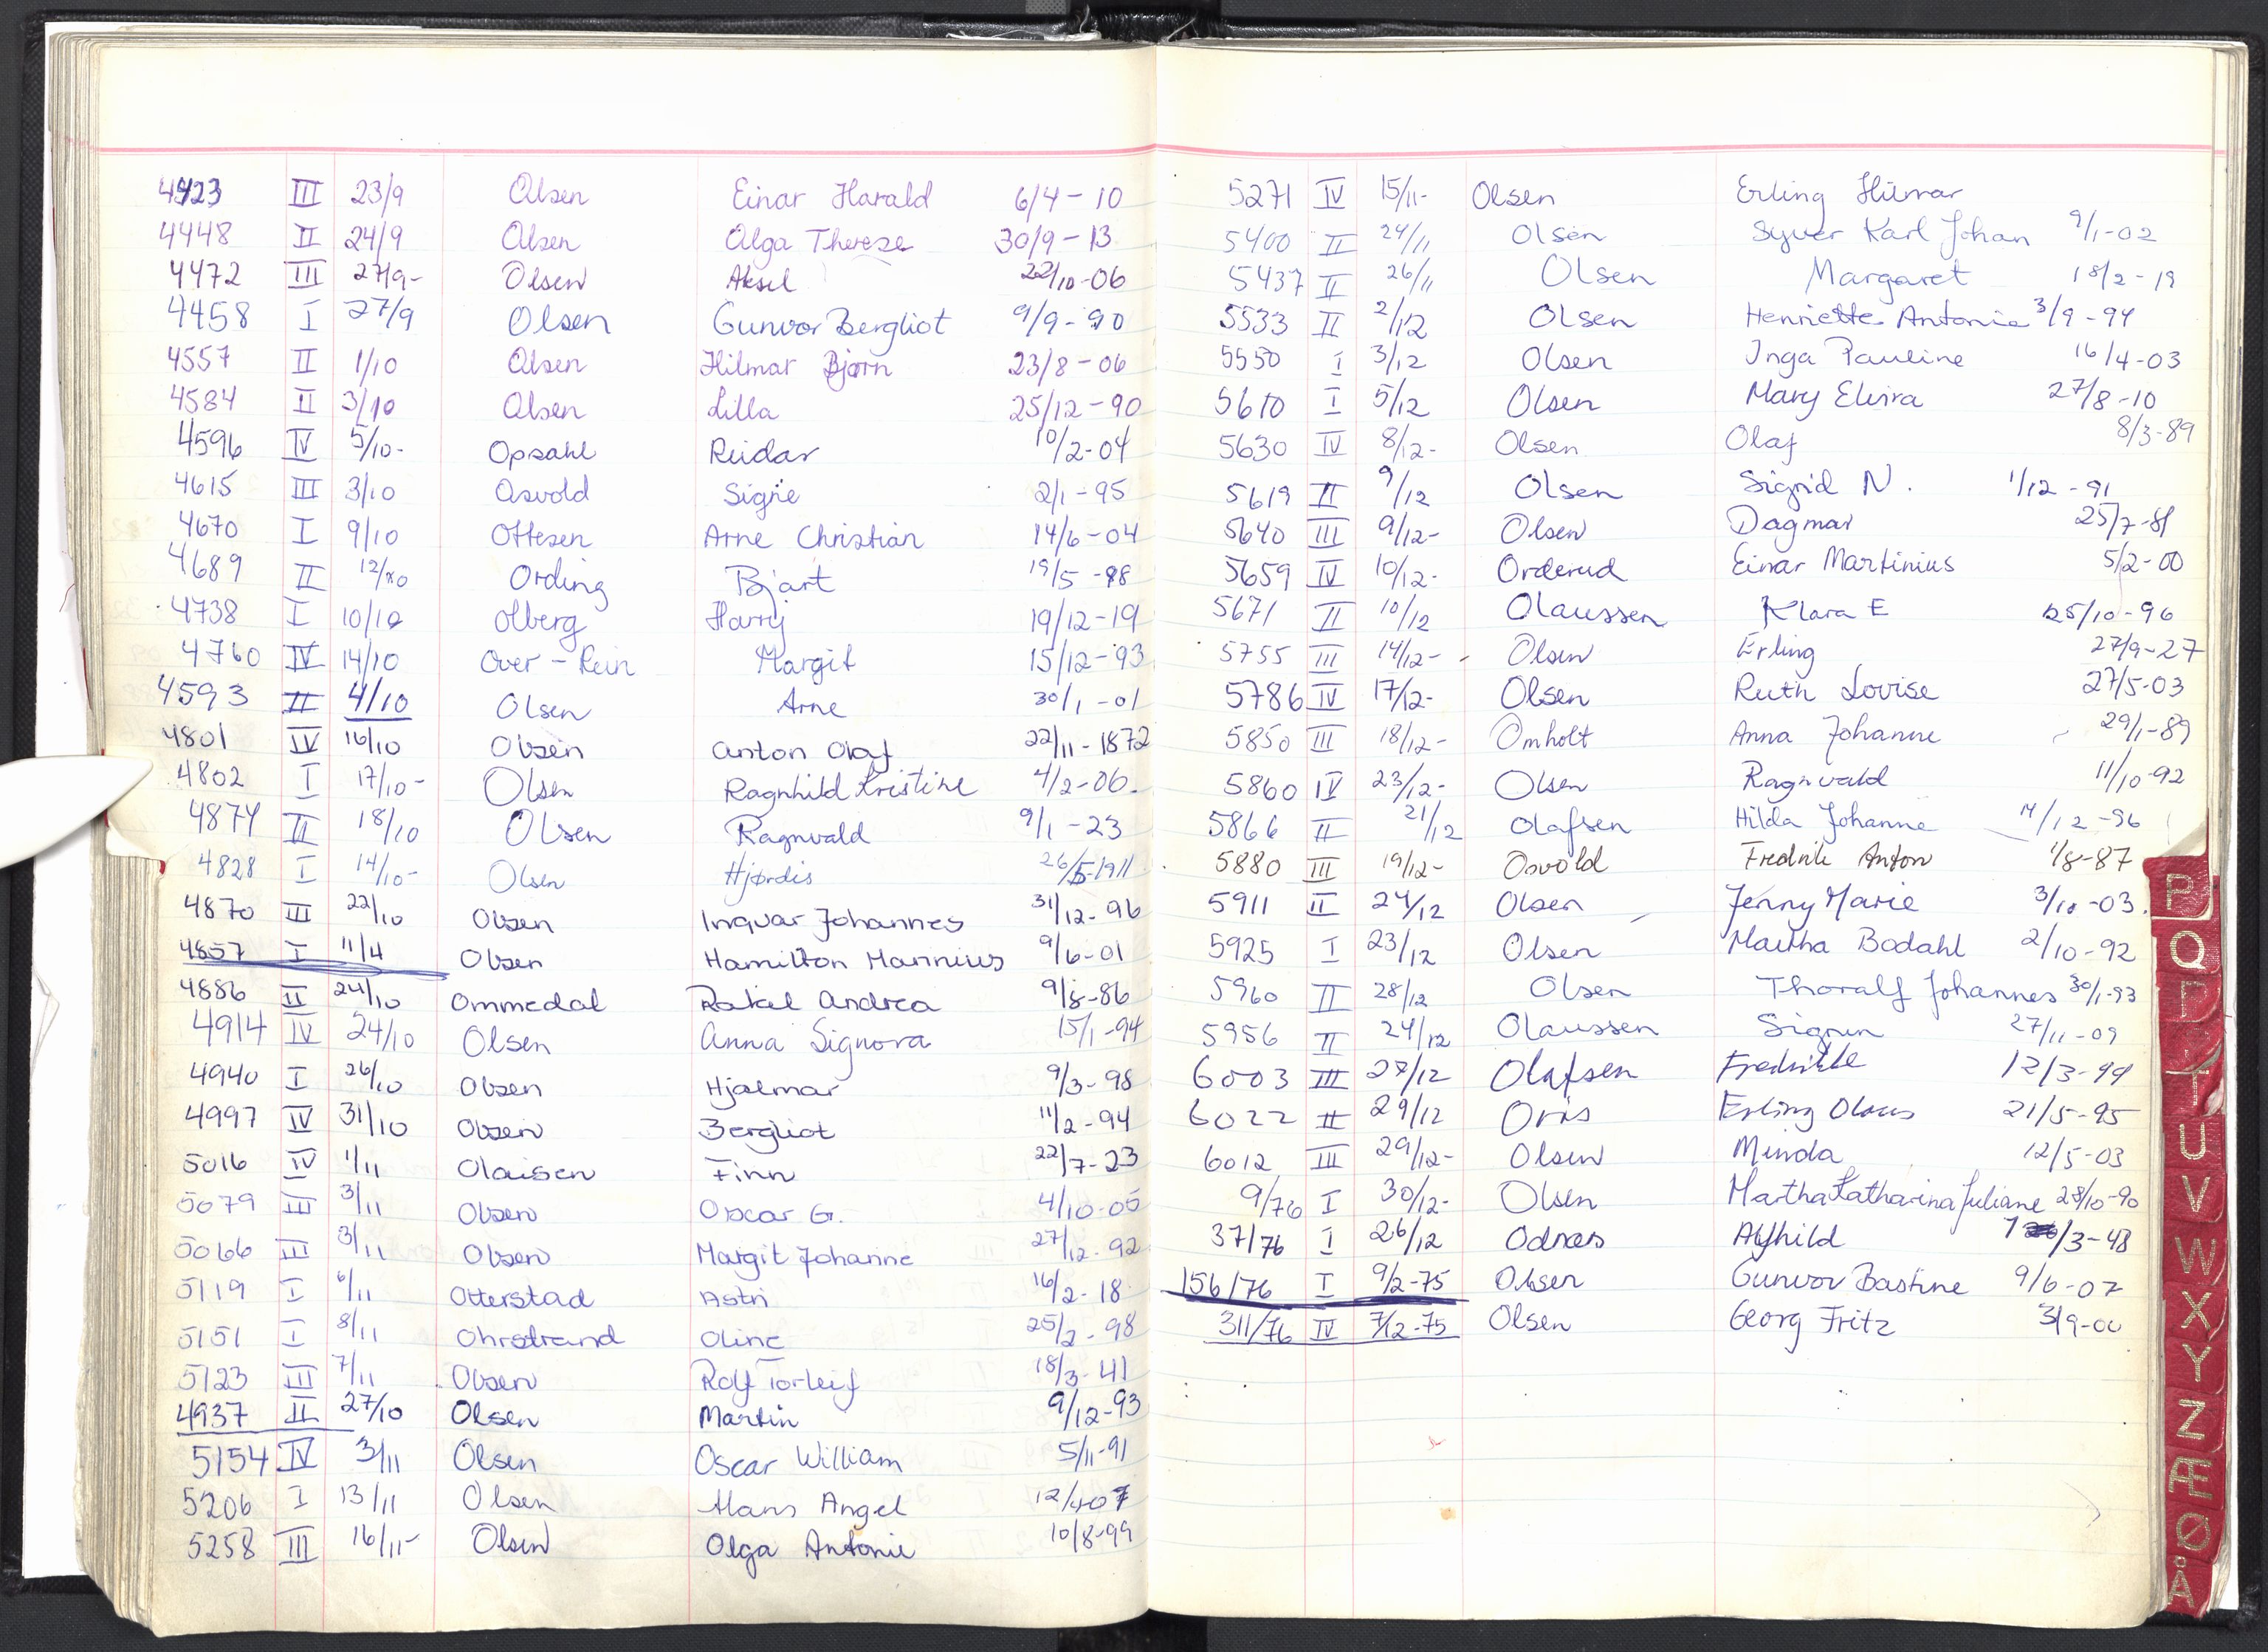 4423 III 23/9 Olsen Einar Harald 6/4-10
4448 II 24/9 Olsen Olga Therese 30/9-13
4472 III 27/9- Olsen Aksel 22/10-06
4458 I 27/9 Olsen Gunvor Bergliot 9/9-90
4557 II 1/10 Olsen Hilmar Bjørn 23/8-06
4584 II 3/10 Olsen Lilla 25/12-90
4596 IV 5/10- Opsahl Reidar 10/2-04
4615 III 3/10 Osvold Signe 2/1-95
4670 I 9/10 Ottesen Arne Christian 14/6-04
4689 II 12/10 Ording Bjart 19/5-98
4738 I 10/10 Olberg Harry 19/12-19
4760 IV 14/10 Over-Rein Margit 15/12-93
4593 II 4/10 Olsen Arne 30/1-01
4801 IV 16/10 Olsen Anton Olaf 22/11-1872
4802 I 17/10- Olsen Ragnhild Kristine 4/2-06.
4874 II 18/10 Olsen Ragnvald 9/1-23
4828 I 14/10- Olsen Hjørdis 26/5-1911
4870 III 22/10 Olsen Ingvar Johannes 31/12-96
4857 I 11/4 Olsen Hamilton Mannius 9/6-01
4886 II 24/10 Ommedal Rakel Andrea 9/8-86
4914 IV 24/10 Olsen Anna Signora 15/1-94
4940 I 26/10 Olsen Hjalmar 9/3-98
4997 IV 31/10 Olsen Bergliot 11/2-94
5016 IV 1/11 Olaisen Finn 22/7-23
5079 III 3/11 Olsen Oscar G. 4/10-05
5066 III 3/11 Olsen Margit Johanne 27/12-92
5119 I 6/11 Otterstad Astri 16/2-18
5151 I 8/11 Ohrstrand Oline 25/2-98
5123 III 7/11 Olsen Rolf Torleif 18/3-41
4937 II 27/10 Olsen Martin 9/12-93
5154 IV 3/11 Olsen Oscar William 5/11-91
5206 I 13/11 Olsen Hans Angel 12/4-07
5258 III 16/11- Olsen Olga Antonie 10/8-99
5271 IV 15/11- Olsen Erling Hilmar
5400 II 24/11 Olsen Syver Karl Johan 9/1-02
5437 II 26/11 Olsen Margaret 18/2-19
5533 II 2/12 Olsen Henriette Antonie 3/9-94
5550 I 3/12 Olsen Inga Pauline 16/4-03
5610 I 5/12 Olsen Mary Elvira 27/8-10
5630 IV 8/12- Olsen Olaf 8/3-89
5619 II 9/12 Olsen Sigrid N. 1/12-91
5640 III 9/12- Olsen Dagmar 25/7-81
5659 IV 10/12- Orderud Einar Martinius 5/2-00
5671 II 10/12 Olaussen Klara E 25/10-96
5755 III 14/12- Olsen Erling 27/9-27
5786 IV 17/12- Olsen Ruth Lovise 27/5-03
5850 III 18/12- Omholt Anna Johanne 29/1-89
5860 IV 23/12- Olsen Ragnvald 11/10-92
5866 II 21/12 Olafsen Hilda Johanne 14/12-96
5880 III 19/12- Osvold Fredrik Anton 1/8-87
5911 II 24/12 Olsen Jenny Marie 3/10-03.
5925 I 23/12 Olsen Martha Bodahl 2/10-92
5960 II 28/12 Olsen Thoralf Johannes 30/1-93
5956 II 24/12 Olaussen Sigrun 27/11-09
6003 III 27/12 Olafsen Fredrikke 12/3-99
6022 II 29/12 Erling Olaus 21/5-95
6012 III 29/12- Olsen Minda 12/5-03
9/76 I 30/12- Olsen Martha Katharina Juliane 28/10-90
37/76 I 26/12 Odnæs Alfhild /3-48
156/76 I 9/2-75 Olsen Gunvor Bastine 9/6-07
311/76 IV 7/12-75 Olsen Georg Fritz 3/9-00
P
Q
U
V
W
X
Y
Z
Æ
Ø
Å